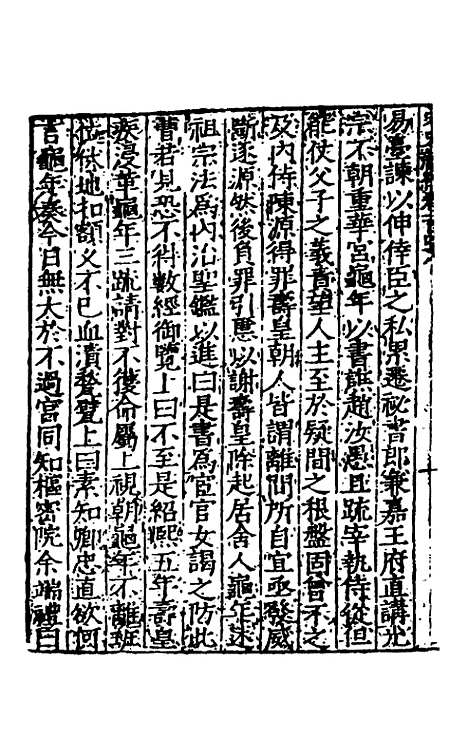 易臺諫以伸倖臣之私累遷祕書郎兼嘉王府直講光
宗不朝重華宮龜年以書譙趙汝愚且疏宰執侍從但
能仗父子之義責望人主至於疑間之根盤固曾不之
及內侍陳源得罪壽皇朝人皆謂離間所自宜亟發威
斷逐源然後負罪引慝以謝壽皇除起居舍人龜年述
祖宗法為內治聖鑑以進曰是書為宦官女謁之防此
曹若見恐不得數經御覽上曰不至是紹熙五年壽皇
疾浸革龜年三疏請對不獲命屬上視朝龜年不離班
位伏地扣額久不已血漬甃甓上曰素知卿忠直欲何
言龜年奏今日無大於不過宮同知樞密院余端禮曰